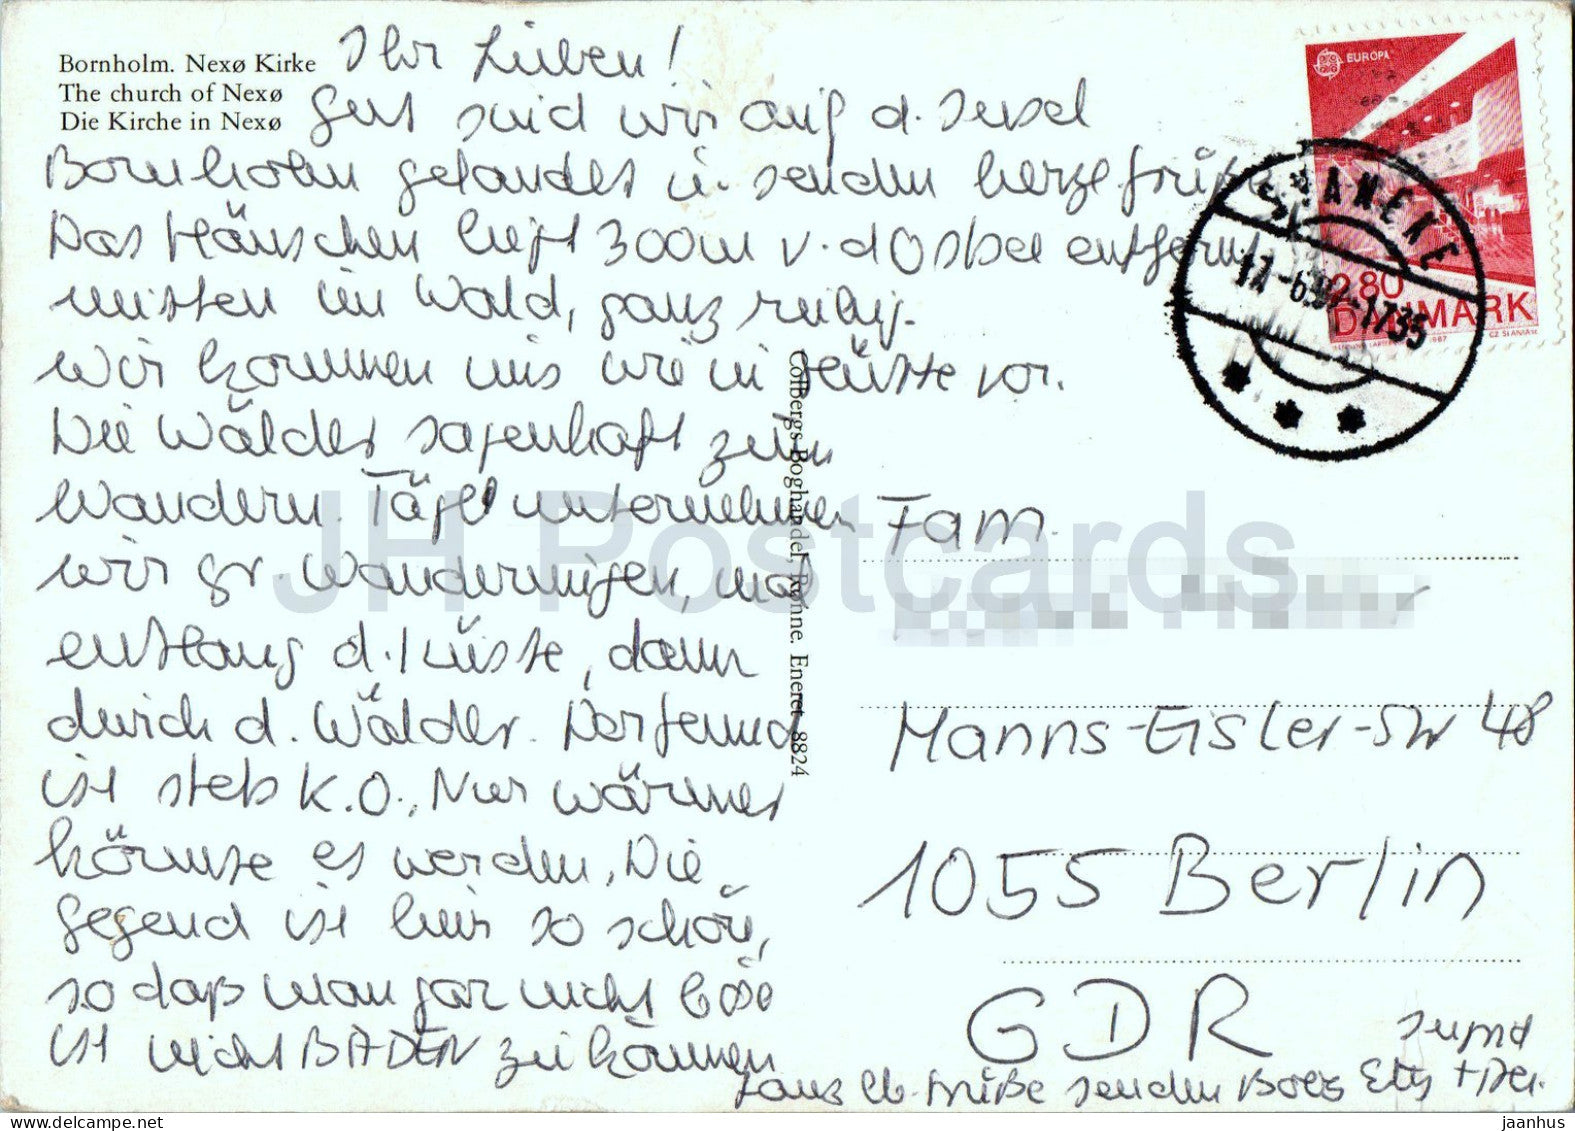 Bornholm. Nexø Kirke
The church of Nexø
Die Kirche in Nexø
Ihr Lieben!
Gut sind wir auf d. Insel
Bornholm gelandet u. senden herzl. Grüße
Das Häuschen liegt 300m v. d Ostsee entfernt
mitten im Wald, ganz ruhig.
Wir kommen uns wie in vor.
Die Wälder sagenhaft zum
Wandern. Tägl unternehmen
wir gr Wanderungen, mal
entlang d. Küste, dann
durch d. Wälder.
ist stets K.O., Nur wärmer
könnte es werden. Die
Gegend ist hier so schön,
so daß man gar nicht böse
ist nicht BADEN zu können
Ganz lb. Grüße senden
EUROPA
2.80
DANMARK
1987
SVANEKE
17-6.87-1735
Colbergs Boghandel, Rønne. Eneret 8824
Fam.
Hanns-Eisler-Str 48
1055 Berlin
GDR
JH Postcards
jaanhus